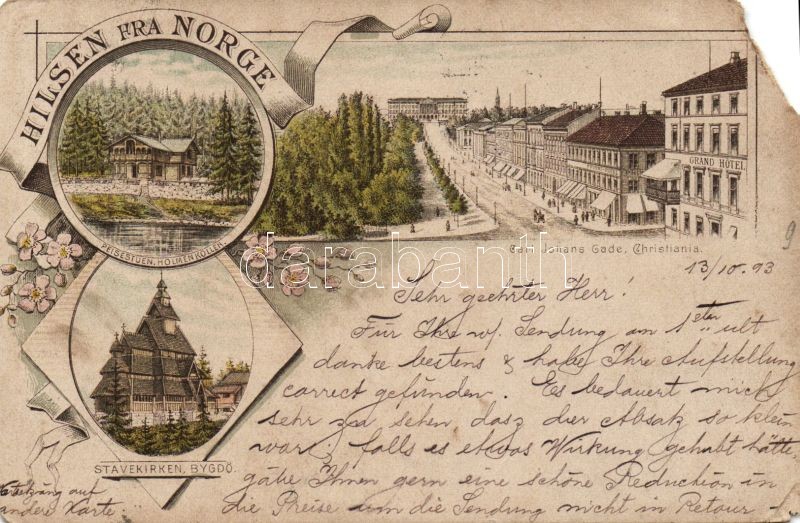 HILSEN FRA NORGE
GRAND HÔTEL
PEISESTUEN, HOLMENKOLLEN.
Carl Johans Gade, Christiania.
darabanth
STAVEKIRKEN, BYGDÖ.
9
13/10.93
Sehr geehrter Herr!
Für Ihre w. Sendung am 1ster ult
danke bestens & habe Ihre Aufstellung
correct gefunden. Es bedauert mich
sehr zu sehen dasz der Absatz so klein
war; falls es etwas Wirkung gehabt hätte,
gäbe Ihnen gern eine schöne Reduction in
die Preise um die Sendung nicht in Retour -
auf
andere Karte: